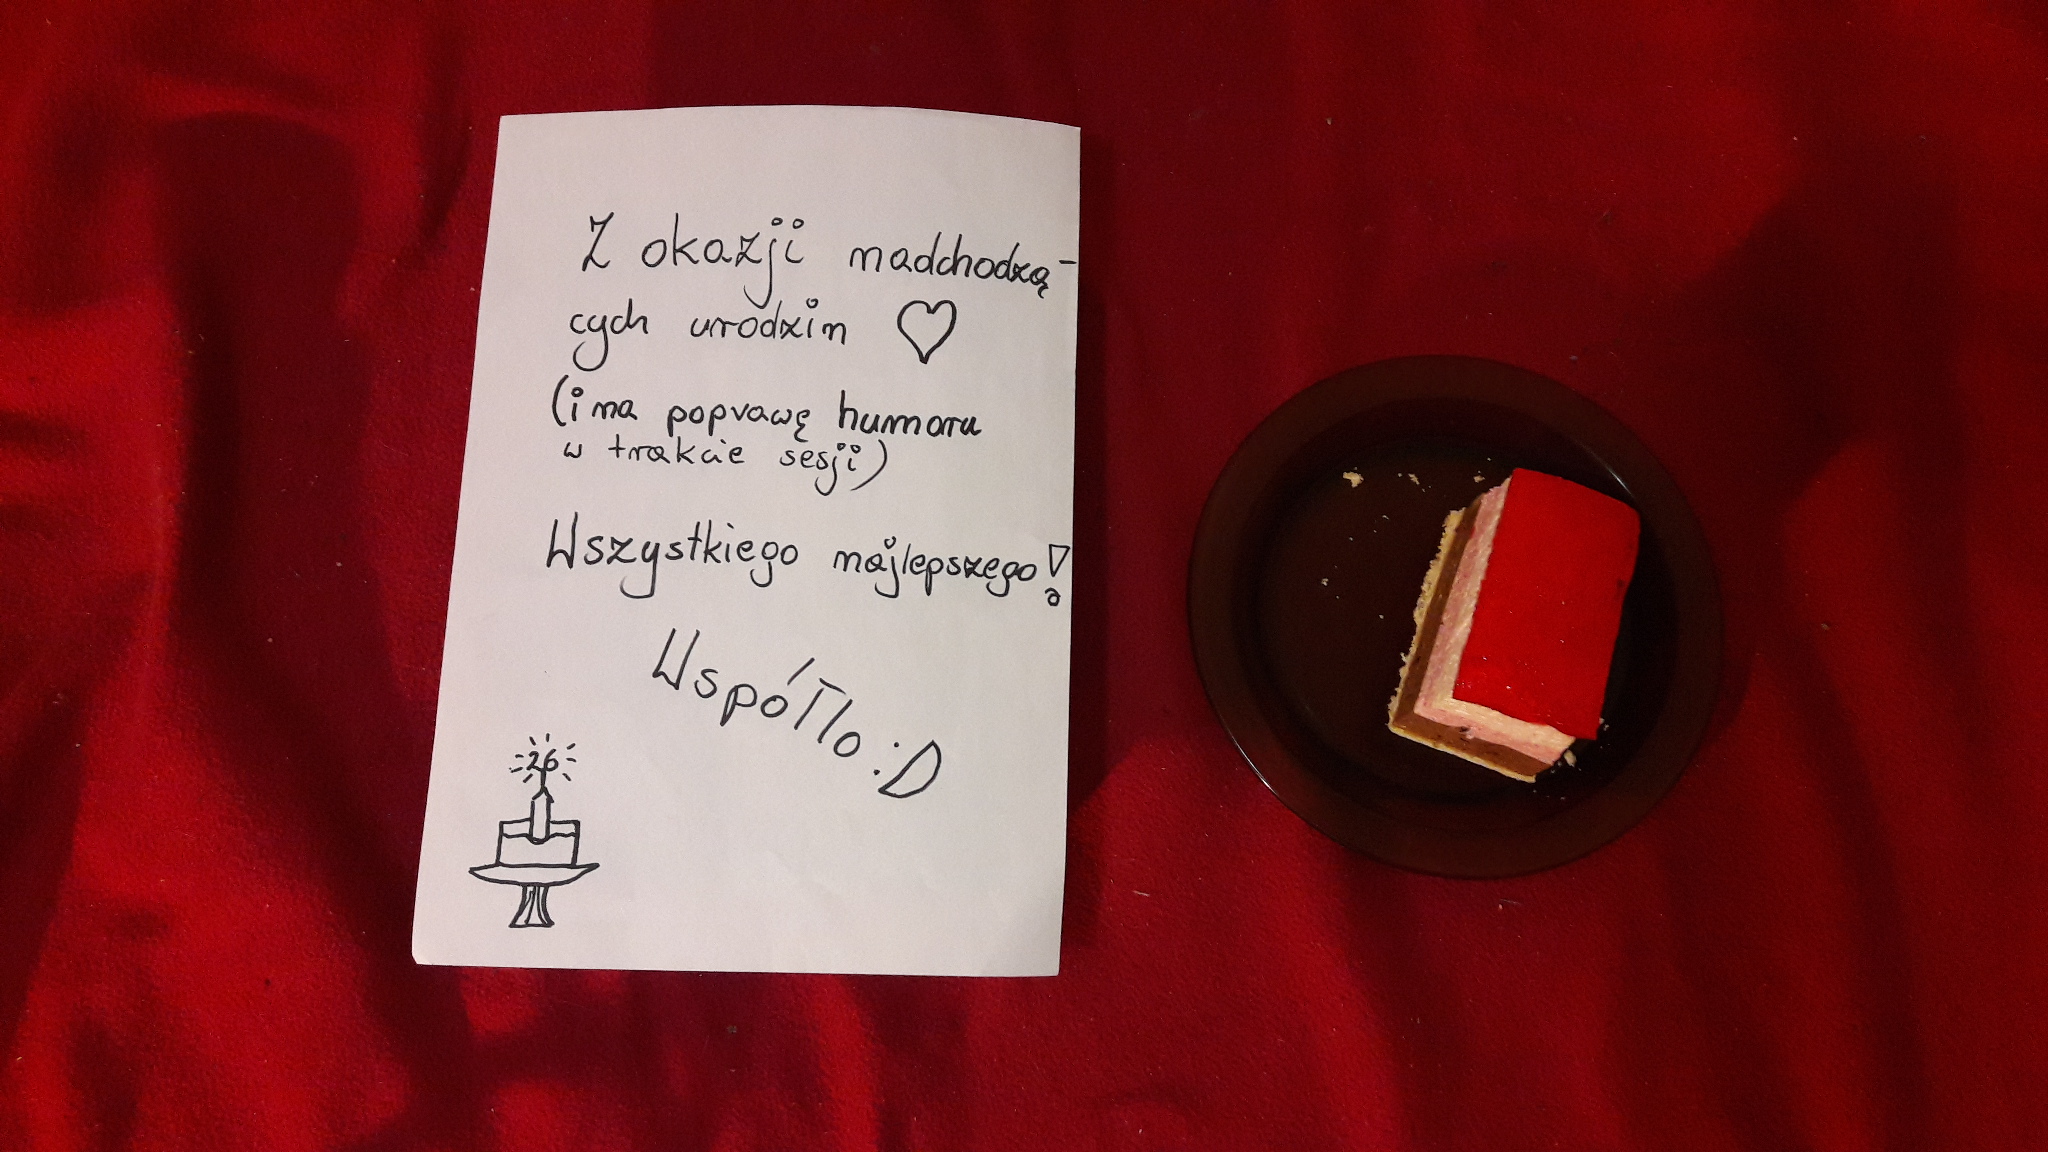 Z okazji nadchodzą-
cych urodzin ♡
(i na poprawę humoru
w trakcie sesji)
Wszystkiego najlepszego!
Współlo :D
26